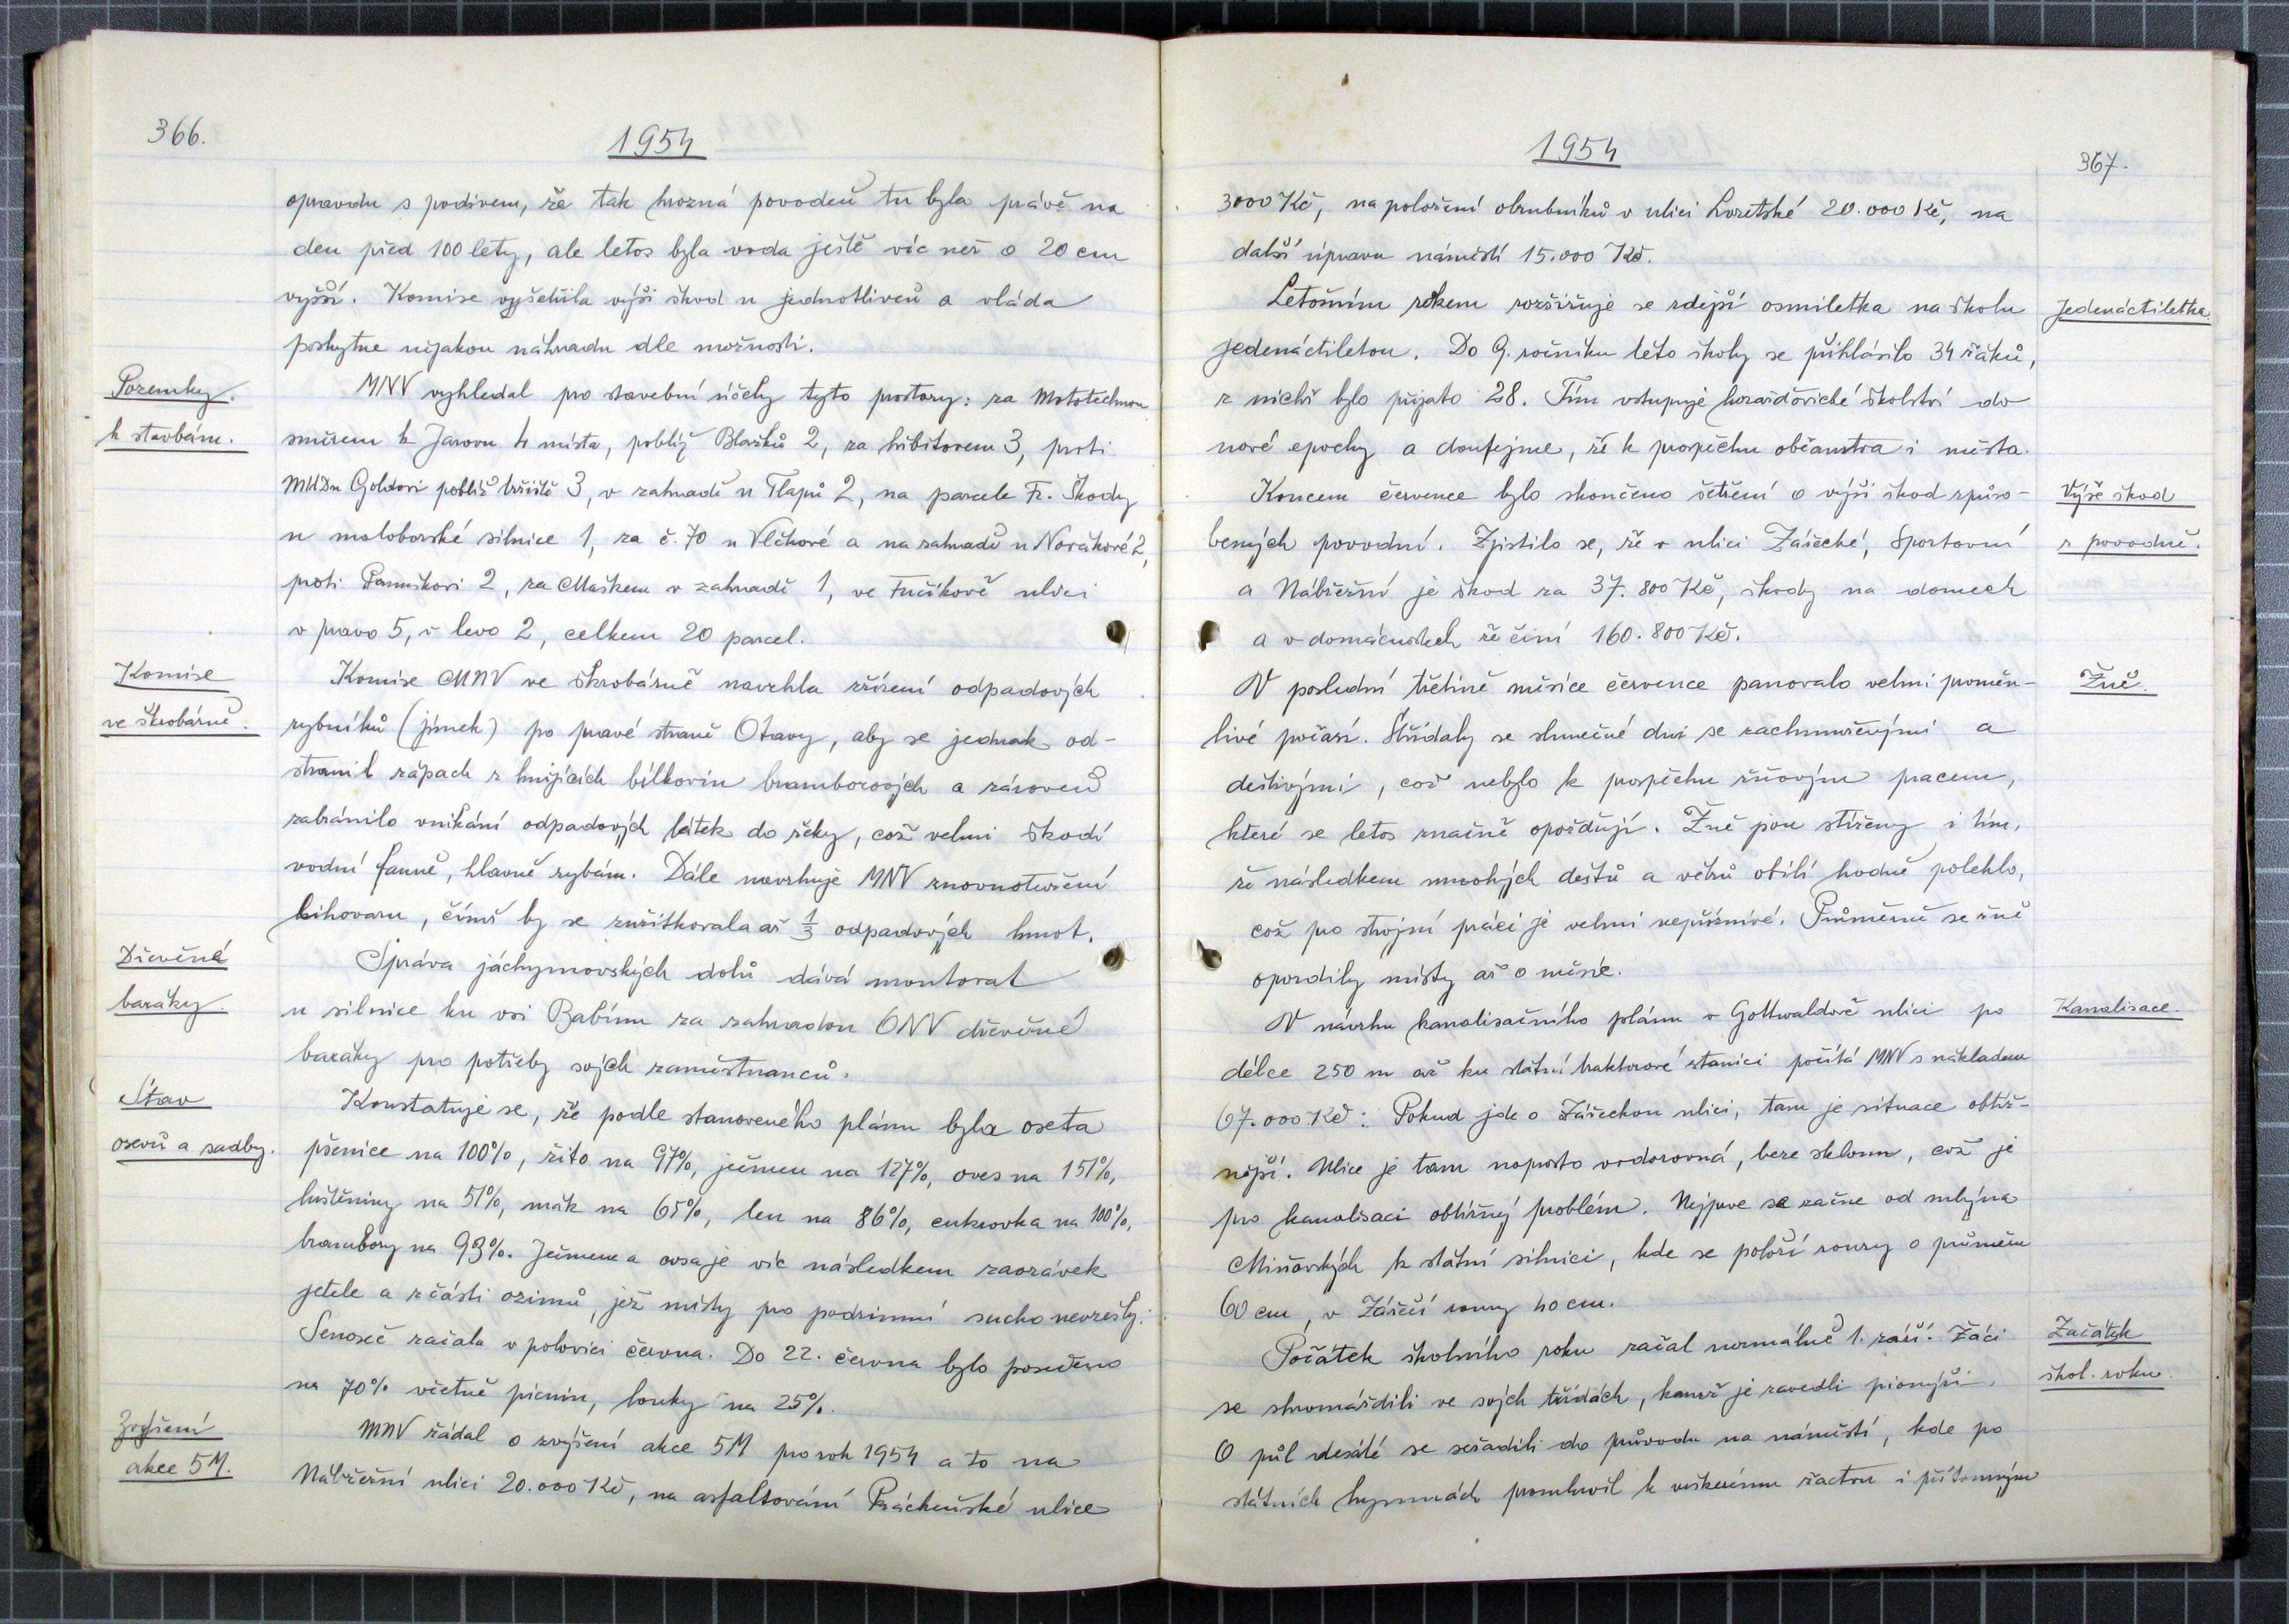 366.
1954
opravdu s podivem, že tak hrozná povodeň tu byla právě na
den před 100 lety, ale letos byla voda ještě víc než o 20 cm
vyšší. Komise vyšetřila výši škod u jednotlivců a vláda
poskytne nějakou náhradu dle možnosti.
Pozemky
k stavbám.
MNV vyhledal pro stavební účely tyto prostory: za Mototechnou
směrem k Jarovu 4 místa, poblíž Blažků 2, za hřbitovem 3, proti
MUDru Goldovi poblíž hřiště 3, v zahradě u Tlapů 2, na parcele Fr. Škody
u maloborské silnice 1, za č. 70 u Vlčkové a na zahradě u Novákové 2,
proti 2, za Maškem v zahradě 1, ve Fučíkově ulici
v pravo 5, v levo 2, celkem 20 parcel.
Komise
ve škrobárně.
Komise MNV ve škrobárně navrhla zřízení odpadových
rybníků (jímek) po pravé straně Otavy, aby se jednak od-
stranil zápach z hnijících bílkovin bramborových a zároveň
zabránilo vnikání odpadových látek do řeky, což velmi škodí
vodní fauně, hlavně rybám. Dále navrhuje MNV znovuotevření
lihovaru, čímž by se zužitkovala až 1/3 odpadových hmot.
Dřevěné
baráky.
Správa jáchymovských dolů dává montovat
u silnice ku vsi Babínu za zahradou ONV dřevěné
baráky pro potřeby svých zaměstnanců.
Stav
osevů a sadby.
Konstatuje se, že podle stanoveného plánu byla oseta
pšenice na 100%, žito na 97%, ječmen na 127%, oves na 151%,
luštěniny na 51%, mák na 65%, len na 86%, cukrovka na 100%,
brambory na 93%. Ječmene a ovsa je víc následkem zaorávek
jetele a zčásti ozimů, jež místy pro podzimní sucho nevzešly.
Senoseč začala v polovici června. Do 22. června bylo posečeno
na 70% včetně pícnin, louky na 25%.
Zvýšení
akce 5M.
MNV žádal o zvýšení akce 5M pro rok 1954 a to na
Nábřežní ulici 20.000 Kč, na asfaltování Prácheňské ulice
1954
367.
3000 Kč, na položení obrubníků v ulici Loretské 20.000 Kč, na
další úpravu náměstí 15.000 Kč.
Jedenáctiletka.
Letošním rokem rozšiřuje se zdejší osmiletka na školu
jedenáctiletou. Do 9. ročníku této školy se přihlásilo 34 žáků,
z nichž bylo přijato 28. Tím vstupuje horažďovické školství do
nové epochy a doufejme, že k prospěchu občanstva i města.
Výše škod
z povodně.
Koncem července bylo skončeno šetření o výši škod způso-
bených povodní. Zjistilo se, že v ulici Zářečké, Sportovní
a Nábřežní je škod za 37.800 Kč, škody na domech
a v domácnostech že činí 160.800 Kč.
Žně.
V poslední třetině měsíce července panovalo velmi proměn-
livé počasí. Střídaly se slunečné dni se zachmuřenými a
deštivými, což nebylo k prospěchu žňovým pracem,
které se letos značně opožďují. Žně jsou stíženy i tím,
že následkem mnohých dešťů a větrů obilí hodně polehlo,
což pro strojní práci je velmi nepříznivé. Průměrně se žně
opozdily místy až o měsíc.
Kanalisace.
V návrhu kanalisačního plánu v Gottwaldově ulici po
délce 250 m až ku státní traktorové stanici počítá MNV s nákladem
67.000 Kč: Pokud jde o Zářeckou ulici, tam je situace obtíž-
nější. Ulice je tam naprosto vodorovná, beze sklonu, což je
pro kanalisaci obtížný problém. Nejprve se začne od mlýna
Miňovských k státní silnici, kde se položí roury o průměru
60 cm, v Zářečí roury 40 cm.
Začátek
škol. roku.
Počátek školního roku začal normálně 1. září. Žáci
se shromáždili ve svých třídách, kamž je zavedli pionýři.
O půl desáté se seřadili do průvodu na náměstí, kde po
státních hymnách promluvil k veškerému žactvu i přítomným